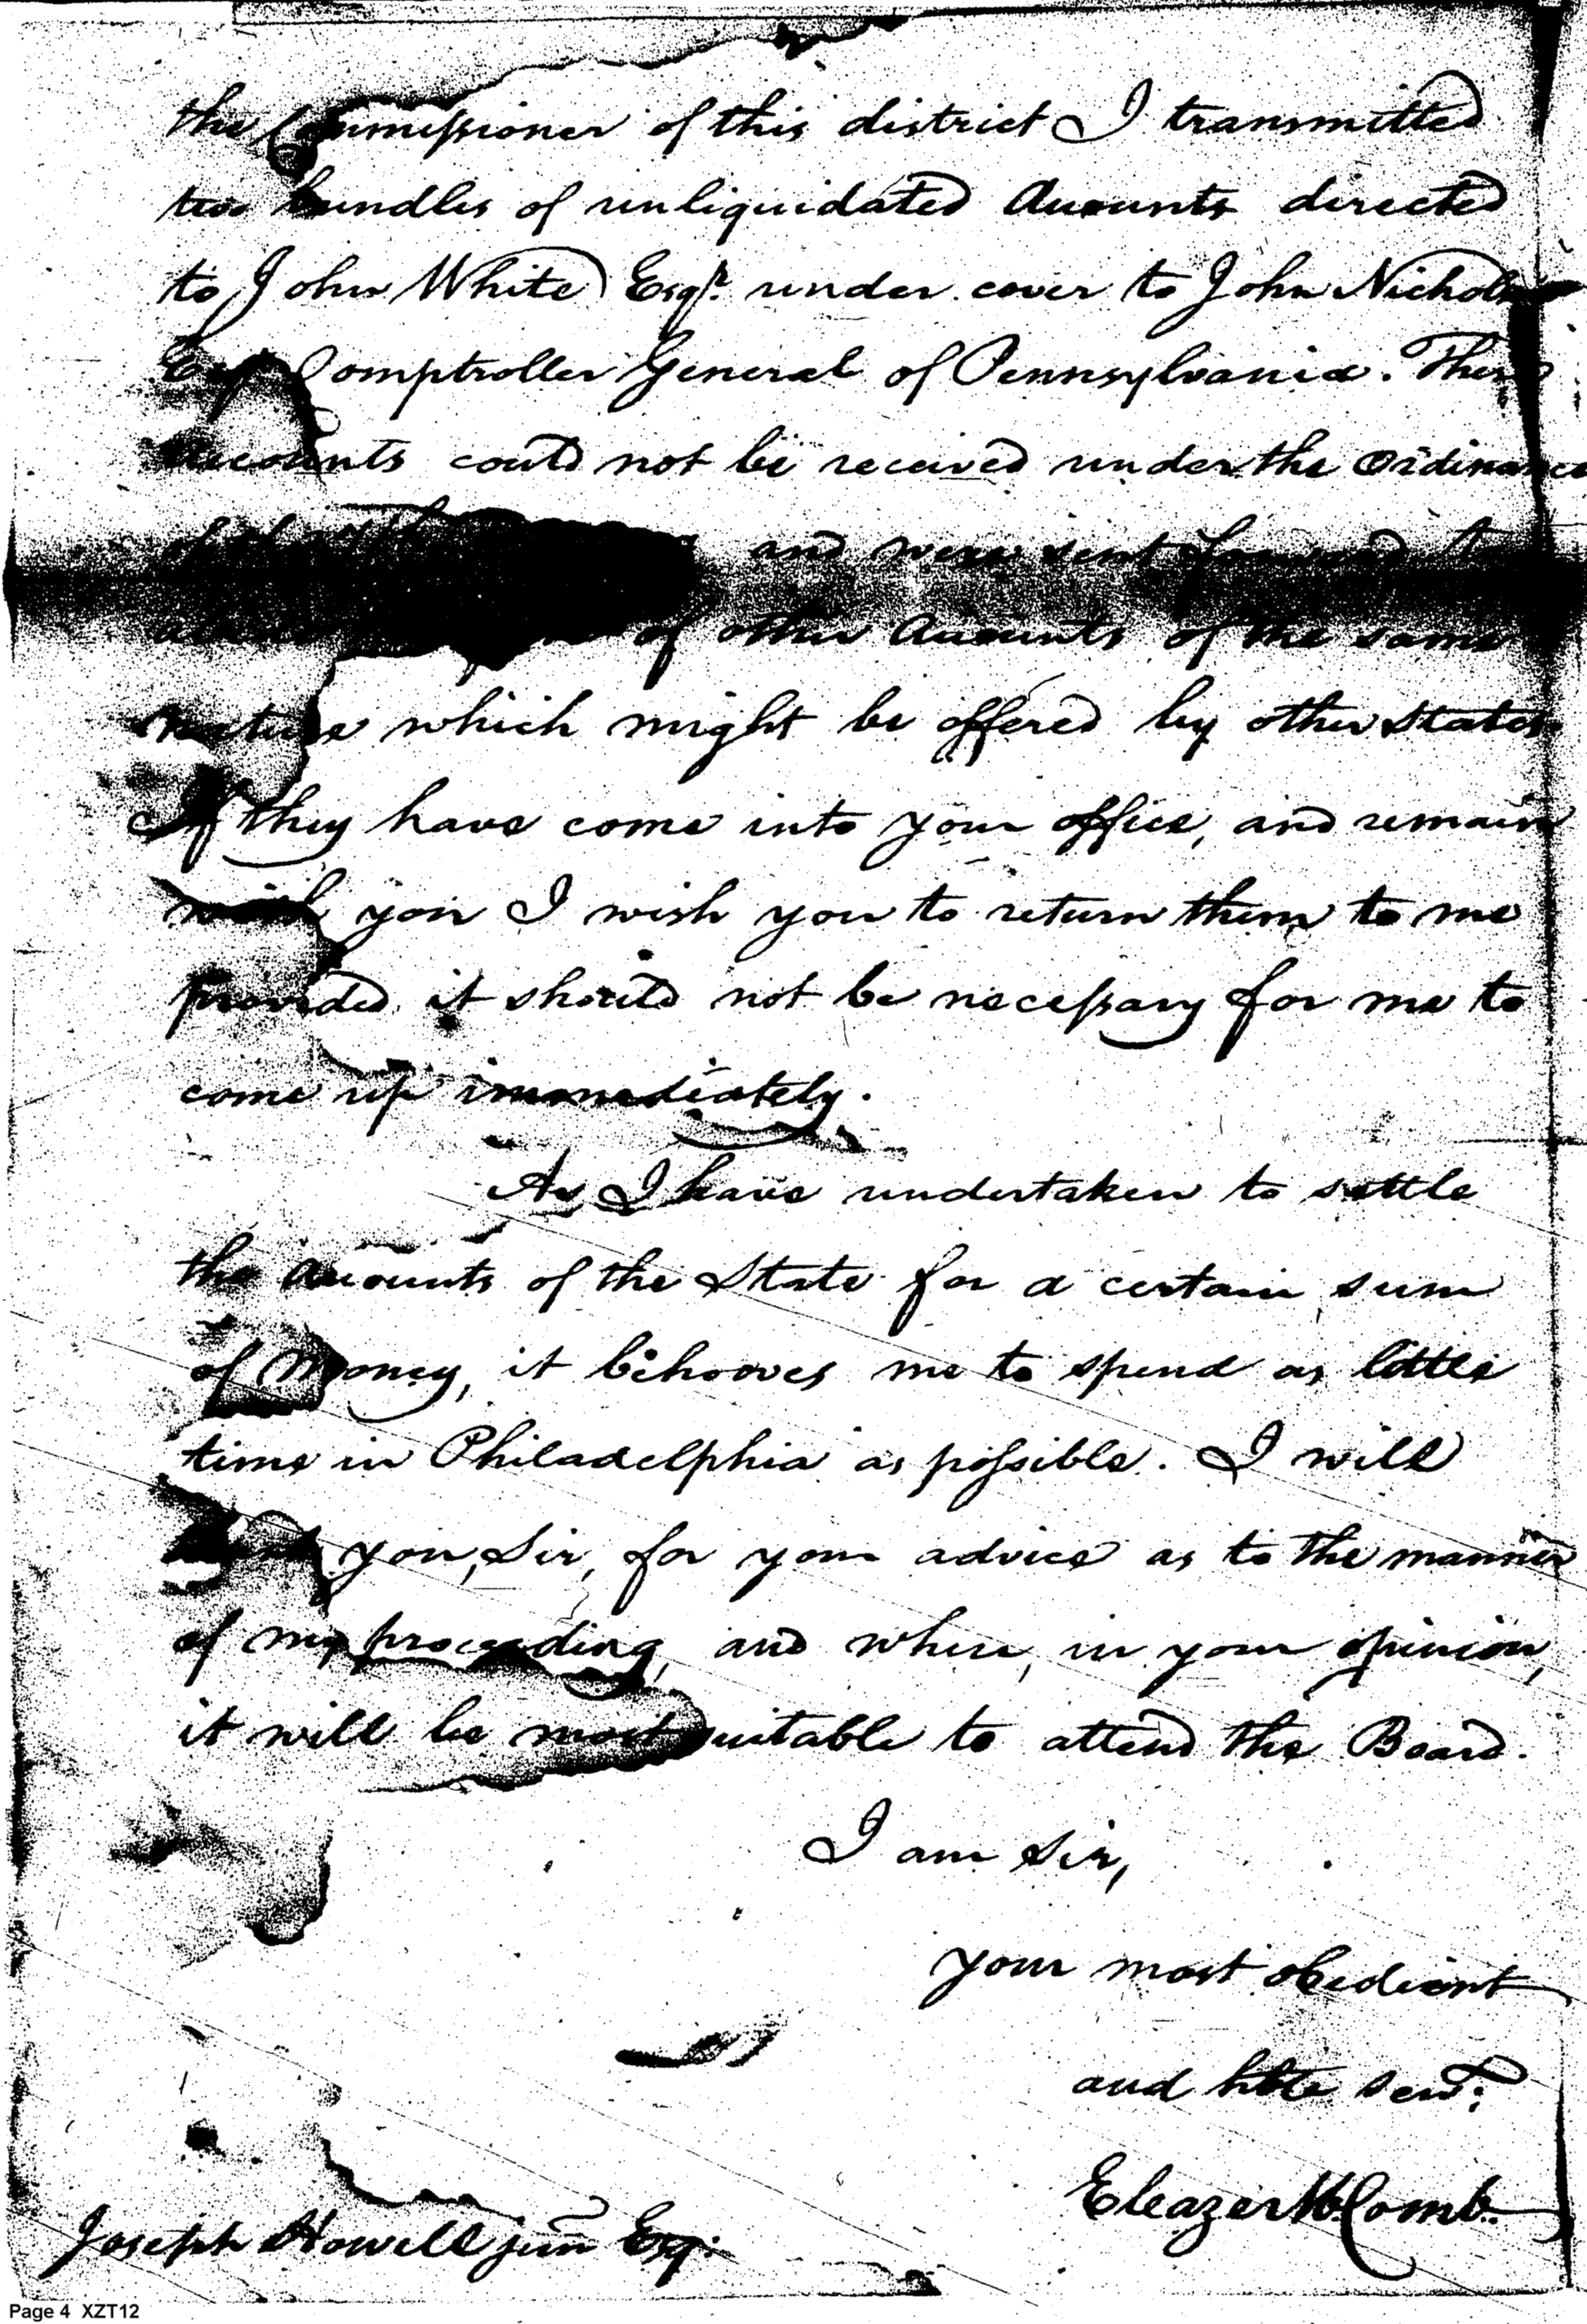 the Commissioner of this district I transmitted
two bundles of unliquidated Accounts directed
to John White Esqr. under cover to John Nichols
Comptroller General of Pennsylvania. These
Accounts could not be received under the Ordinance
and were sent forward
of other Accounts of the same
nature which might be offered by other States
If they have come into your office, and remain
with you I wish you to return them to me
provided it should not be necessary for me to
come up immediately.
As I have undertaken to settle
the Accounts of the State for a certain sum
of Money, it behooves me to spend as little
time in Philadelphia as possible. I will
you, Sir, for your advice as to the manner
of my proceeding, and when, in your opinion,
it will be most suitable to attend the Board.
I am Sir,
your most obedient
and hble servt.
Eleazer McComb
Joseph Howell junr Esqr.
Page 4 XZT12